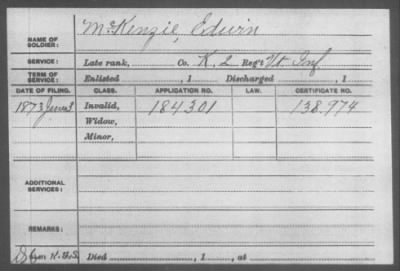 NAME OF SOLDIER: McKenzie, Edwin
SERVICE: Late rank, Co. K, 2 Reg't Vt. Inf
TERM OF SERVICE: Enlisted , 1 Discharged , 1
DATE OF FILING. CLASS. APPLICATION NO. LAW. CERTIFICATE NO.
1873 Invalid, 184301 138.974
Widow,
Minor,
ADDITIONAL SERVICES:
REMARKS:
Died , 1 , at